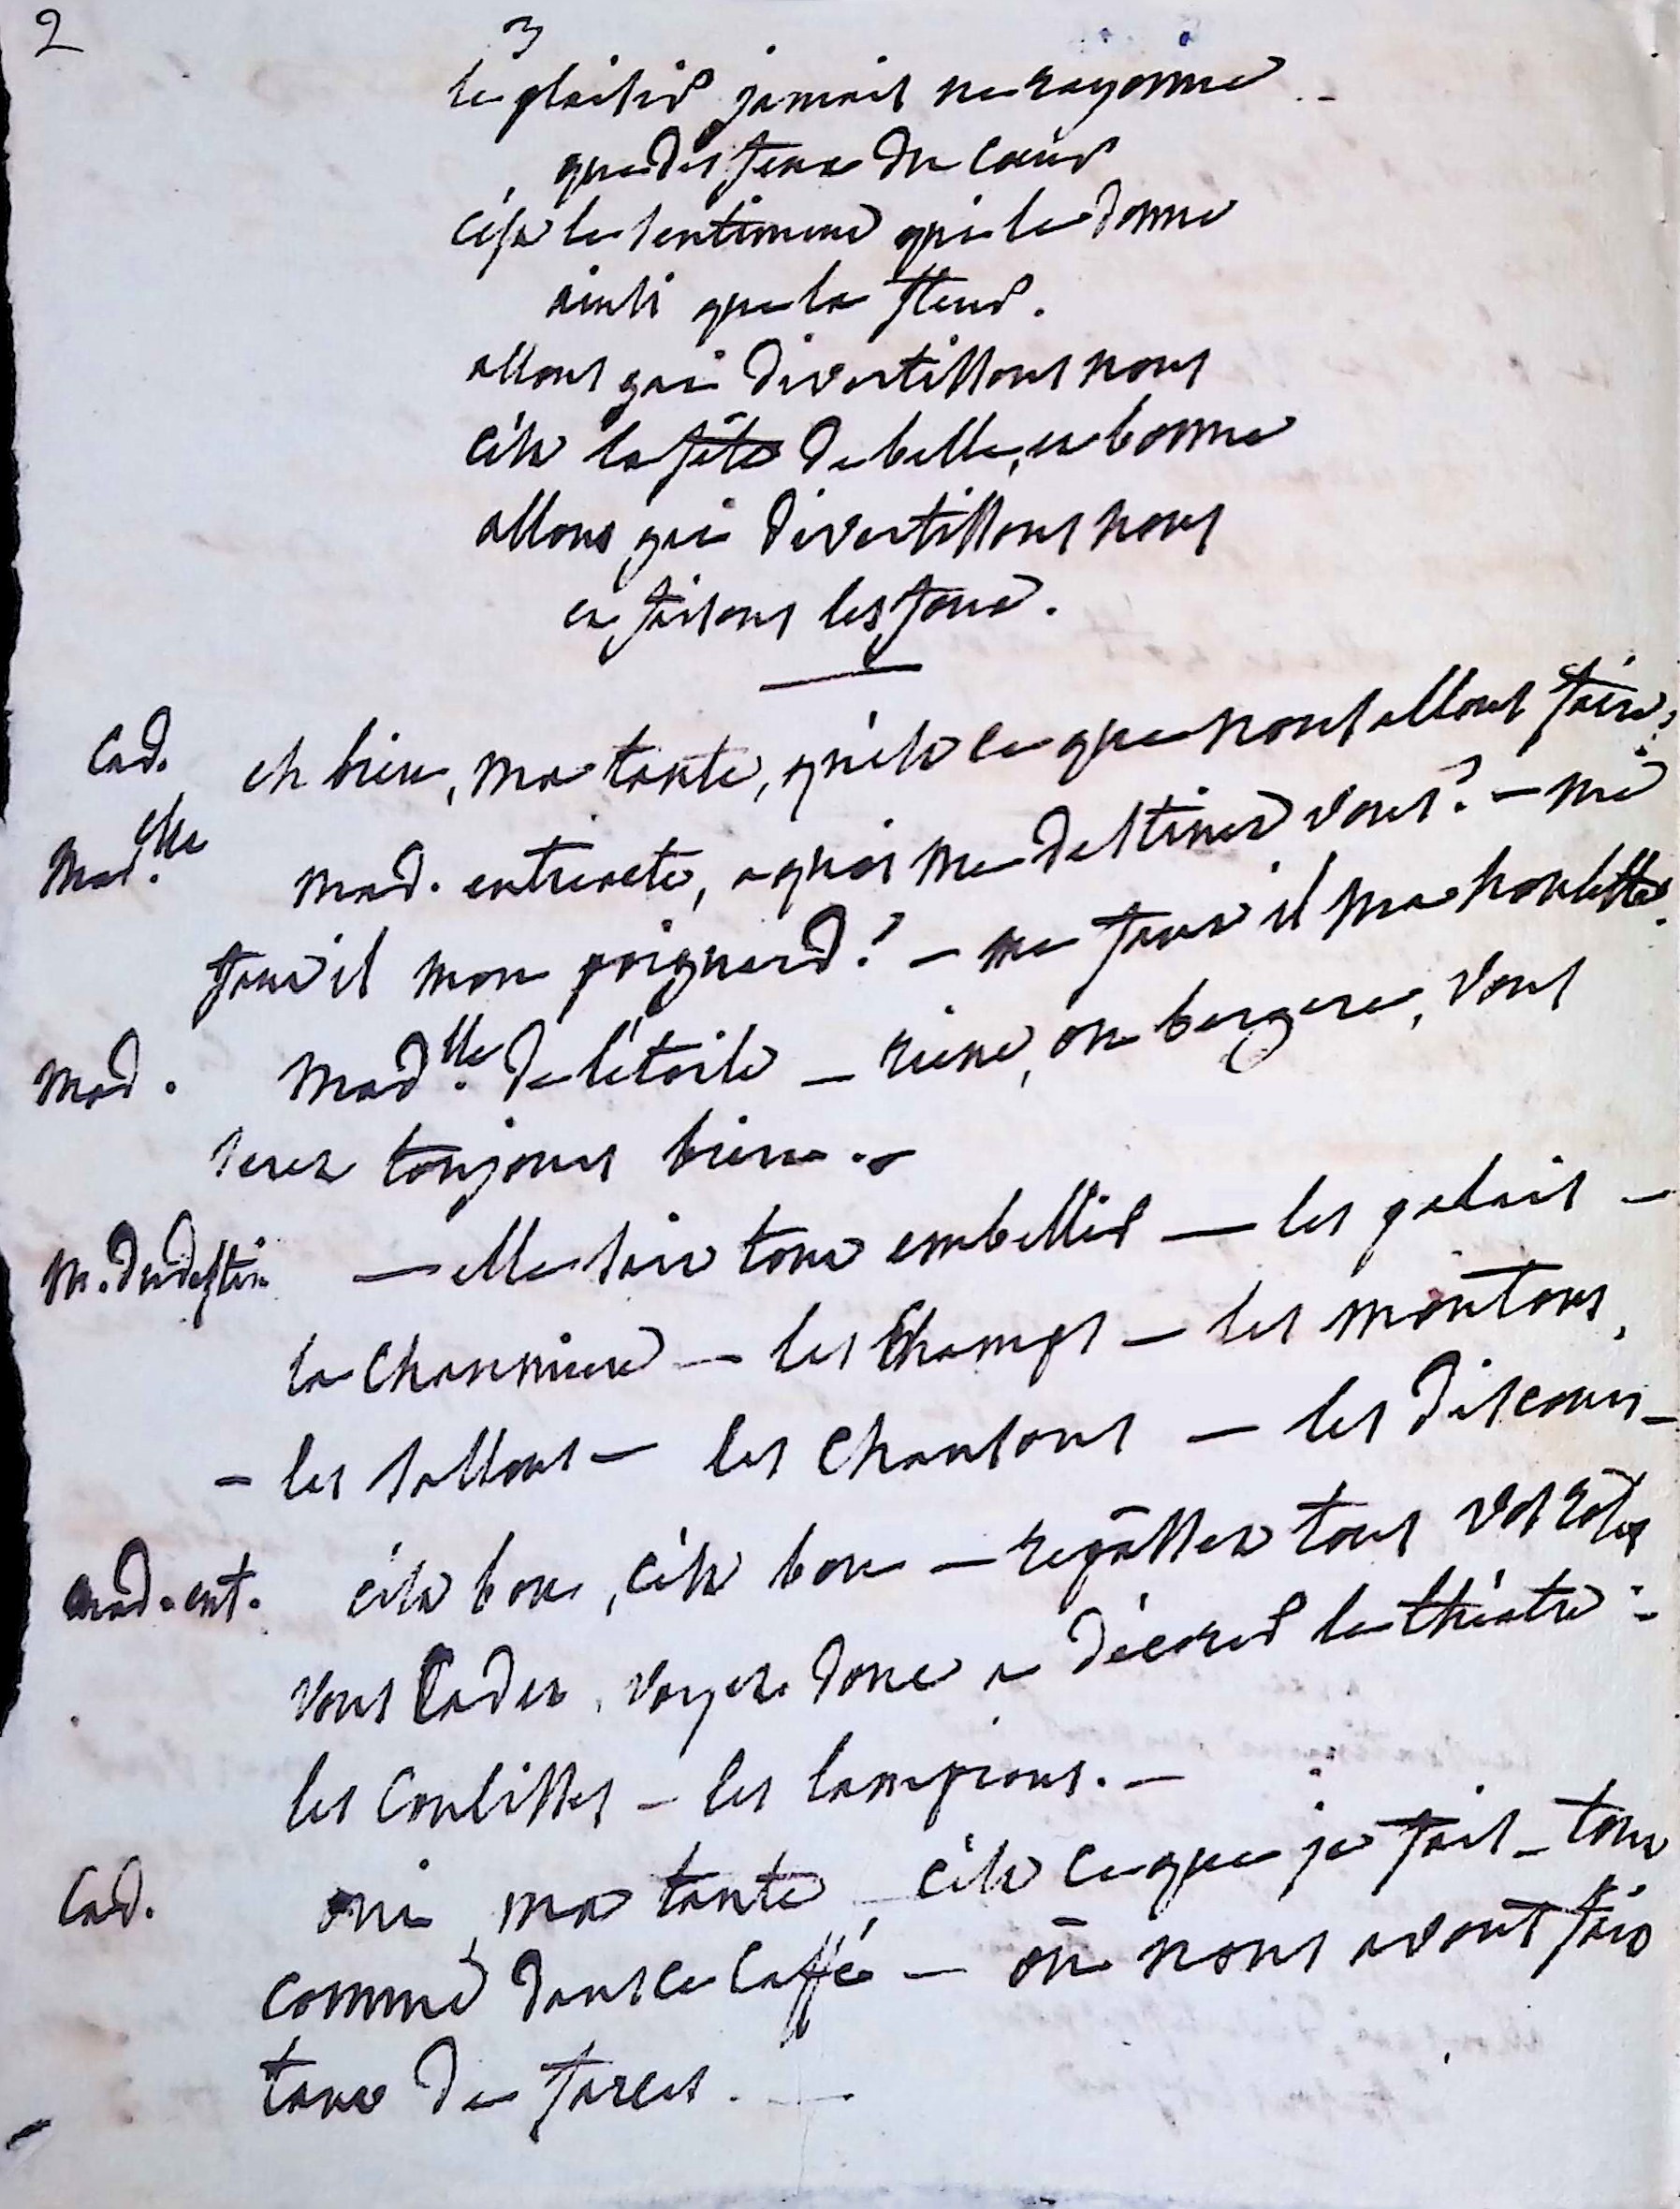 2
3
le plaisir jamais ne rayonne
que des feux du coeur
c'est le sentiment qui le donne
ainsi que la fleur.
allons gai divertissons nous
c'est la fête de belle, et bonne
allons gai divertissons nous
et faisons les fous.
Cad. eh bien, ma tante, qu'est ce que nous allons faire?
Mad.lle mad. entreacte, a quoi me destinez vous? — me
faut il mon poignard? — me faut il ma houlette?
Mad. Mad.lle de l'étoile — reine, ou bergere, vous
serez toujours bien. —
M. du destin — elle sait tout embellir — les palais —
la chaumiere — les champs — les moutons,
— les sallons — les chansons — les discours —
mad. ent. c'est bon, c'est bon — repassez tous vos roles
vous Cadet, voyez donc a décorer le théatre —
les coulisses — les lampions. —
Cad. oui, ma tante, c'est ce que je fais — tout
comme dans ce caffé — où nous avons fait
tant de farces. —